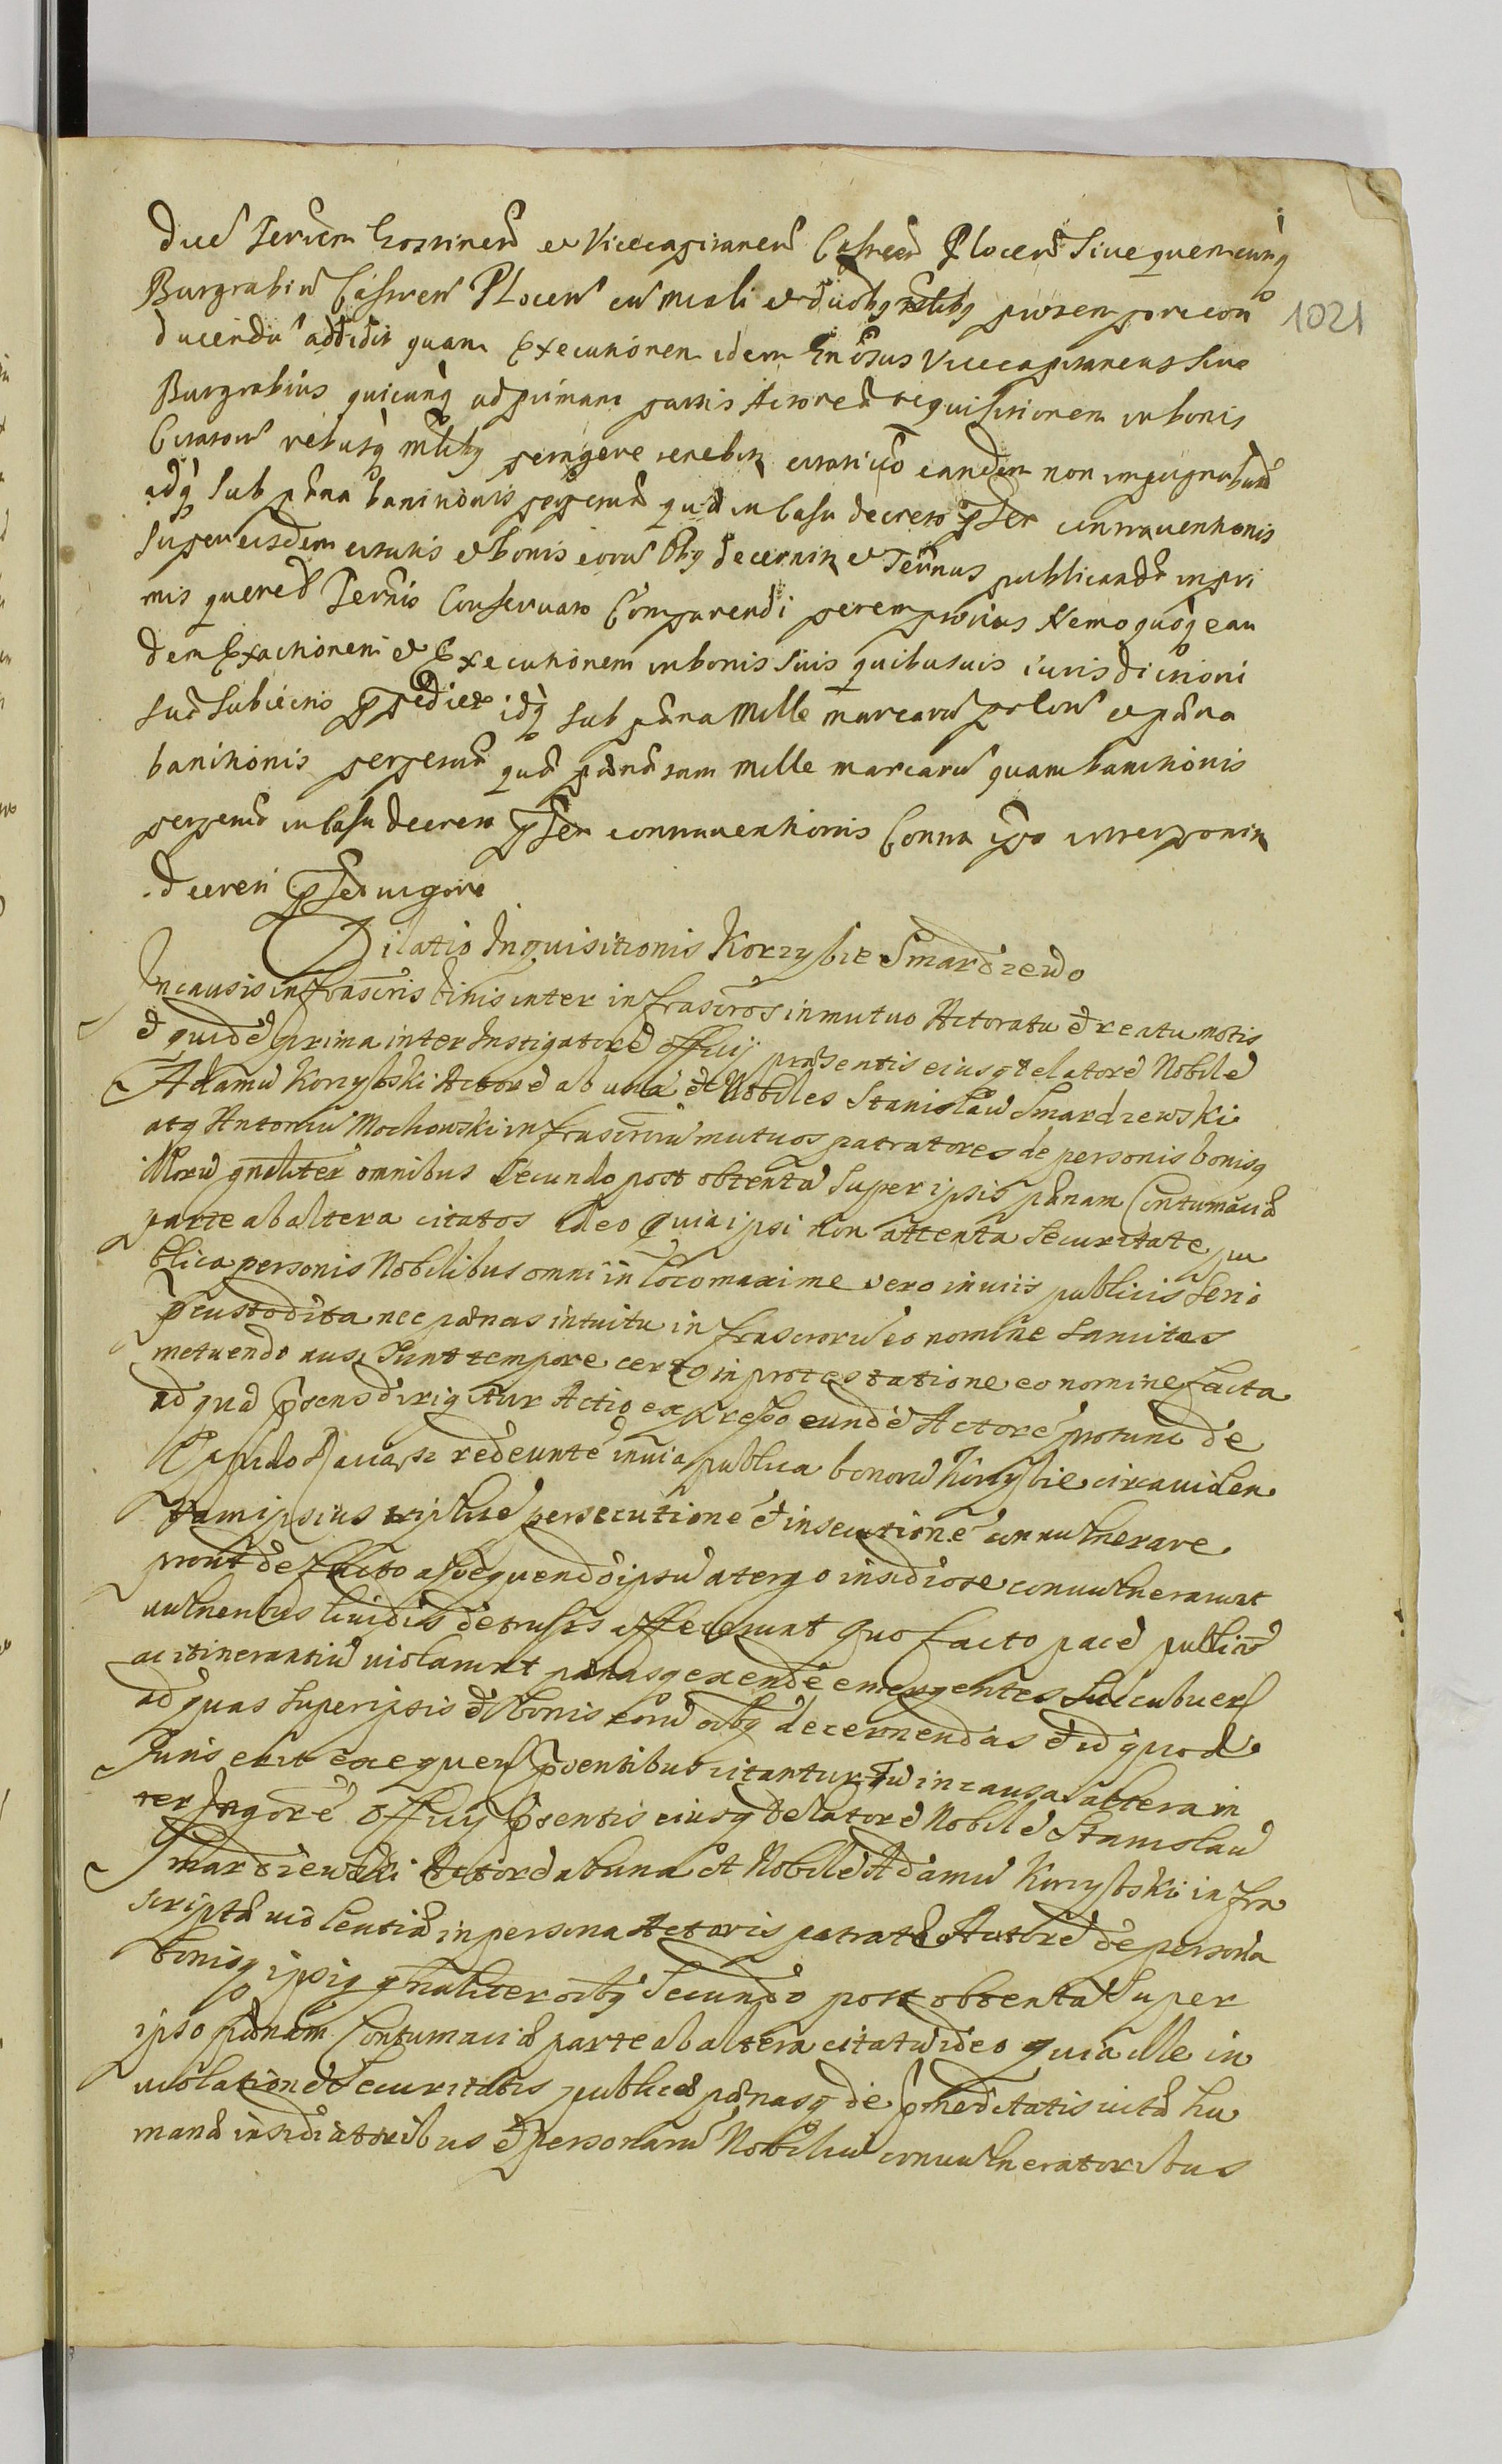 ducẽ Terrẽm Gostinẽn et Vicecapitaneũ Castreñ Plocẽn siue quemcunq
1021
Burgrabiũ Castreñ Plocẽn cũ miali et duobq nlibq pro tempore con
ducendũ addidit quam Executionem idem Gnosus Vicecapitaneus siue
Burgrabius quicunq ad primam partis Actoreæ requisitionem in bonis
Citatorũ rebusq mlibq peragere tenebitr citati vo eandem non impugnabunt
idq sub pæna banitionis perpetuæ quæ in casu decreto pnti contrauentionis
super eisdem citatis et bonis eorũ obq decernitr et Termus publicandæ in pri
mis quereł Termis Conseruato Comparendi peremptorius Nemo quoq ean
dem Exactionem et Executionem in bonis suis quibusuis iurisdictioni
suæ subiectis ppediet idq sub pæna mille marcarũ polon et pæna
banitionis perpetuæ quæ pæna tam mille marcarũ quam banitionis
perpetuæ in casu decreto pnti contrauentionis Contra ipso irrogabitr
decreti pntis vigore
Dilatio Inquisitionis Korzybie Smardzewo
In causis infrascrtis binis inter infrascrtos in mutuo Actoratu et reatu motis
et quidẽ prima inter Instigatorẽ officij præsentis eiusq delatorẽ Nobilẽ
Adamũ Korzybski Actorẽ ab una et Nobiles Stanislaũ Smardzewski
atq Antoniũ Mochowski infrascrtorũ mutuos patratores de personis bonisq
illorũ gnaliter omnibus Secundo post obtentã super ipsis pænam Contumaciæ
parte ab altera citatos Ideo quia ipsi non attenta Securitate pu
blica personis Nobilibus omni in loco maxime vero in viis publicis serio
pcustodita nec pænas intuitu infrascrtorũ eo nomine sancitas
metuendo ausi sunt tempore certo in protestatione eo nomine facta
ad quã psens dirigitur Actio expresso eundẽ Actorẽ protunc de
Oppido Raciąż redeuntẽ in via publica bonorũ Korzybie circa uillen
tam ipsius persecutionẽ et insecutionẽ conuulnerare
prout de facto assequendo ipsũ a tergo insidiose conuulnerarunt
vulneribus liuidis detusis affecerunt Quo facto pacẽ publicã
ac itinerantiũ violarunt pænasq exende emergentes succubuer
ad quas super ipsis et bonis eorũ obq decernendas et id quod
Iuris erit exequeñ psentibus citantur Tũ in causa altera in
ter Ingorẽ officij psentis eiusq delatorẽ Nobilẽ Stanislaũ
Smardzewski Actorẽ ab una et Nobilẽ Adamũ Korzybski infra
scriptæ violentiæ in persona Actoris patratæ Autorẽ de persona
bonisq ipsiq gnaliter obq Secundo post obtentã super
ipso pænam Contumaciæ parte ab altera citatũ ideo quia ille in
violationẽ Securitatis publicæ pænasq de pmeditatis vitæ hu
manæ insidiatoribus et personarũ Nobiliũ conuulneratoribus